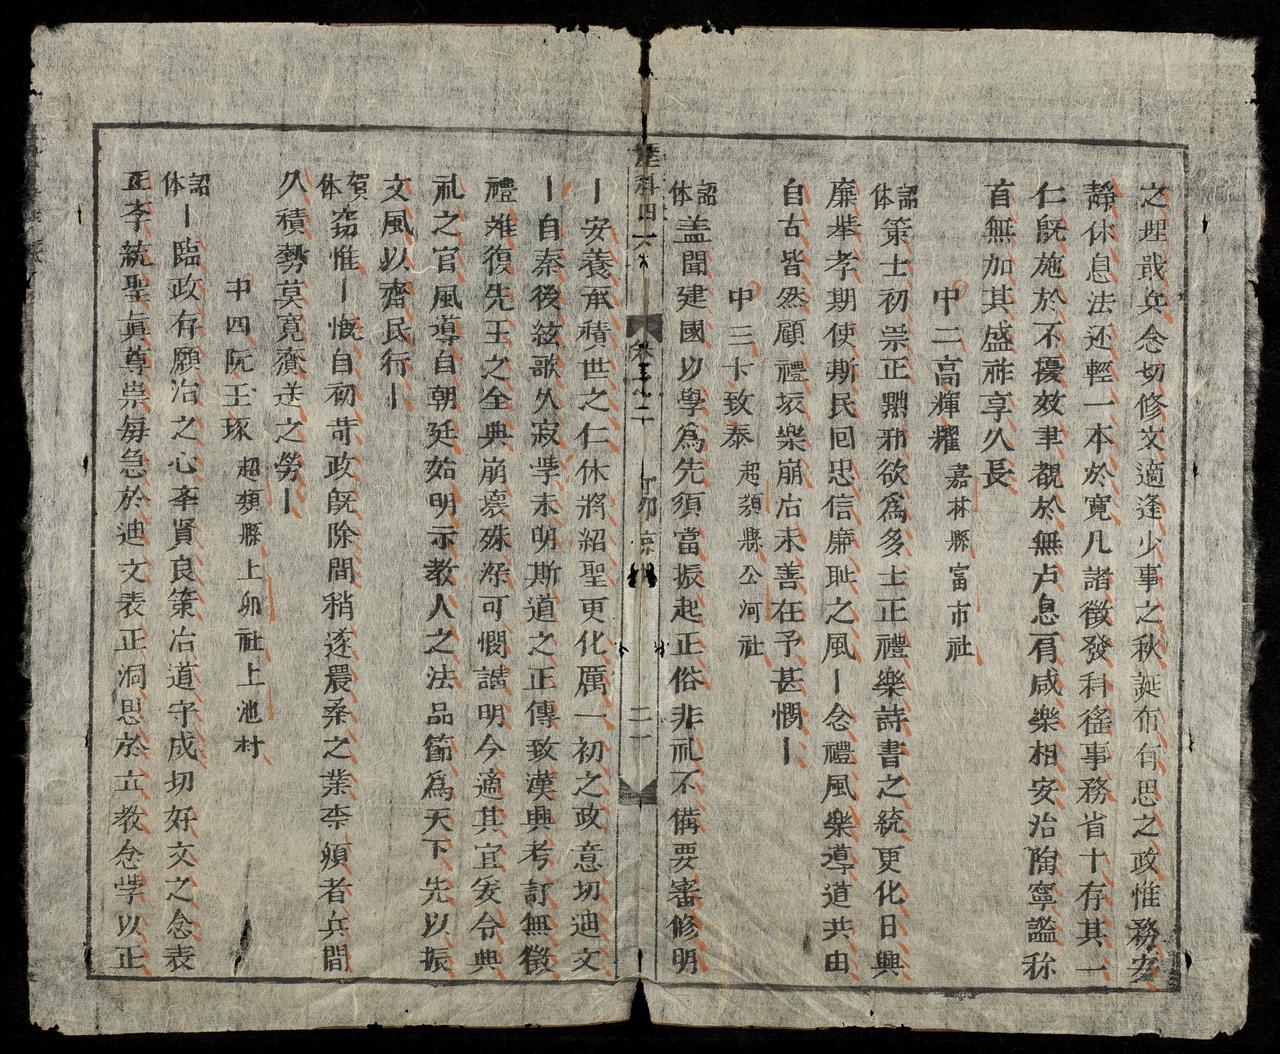 之理哉兵念切修文適逢少事之秋誕布有思之政惟務安
靜休息法还輕一本於寛凡諸徵發科徭事務省十存其一
仁旣施於不擾效聿覩於無占息有咸樂相安治陶寧謐称
首無加其盛祚享久長
中二高輝耀 嘉林縣富市社
詔体策士初崇正黜邪欲爲多士正禮樂詩書之統更化日興
廉举孝期使斯民回忠信廉耻之風丨念禮風樂導道共由
自古皆然顧禮坏樂崩治未善在予甚憫丨
中三卞致泰 超類縣公河社
詔体盖聞建國以學爲先須當振起正俗非礼不備要審修明
丨安養承積世之仁休將紹聖更化厲一初之政意切迪文
丨自秦後絃歌久寂斈未明斯道之正傳致漢興考訂無徵
禮难復先王之全典崩壞殊深可憫諧明今適其宜爰命典
礼之官風導自朝廷始明示教人之法品節爲天下先以振
文風以齊民行丨
賀体窃惟丨慨自初苛政旣除間稍逐農桑之業柰頻者兵間
久積勢莫寛賷送之勞丨
中四阮玉琢 超類縣上卯社上池村
詔体丨臨政存願治之心牽賢良策治道守成切好文之念表
正李統聖眞尊崇毎急於迪文表正洞思於立教念斈以正